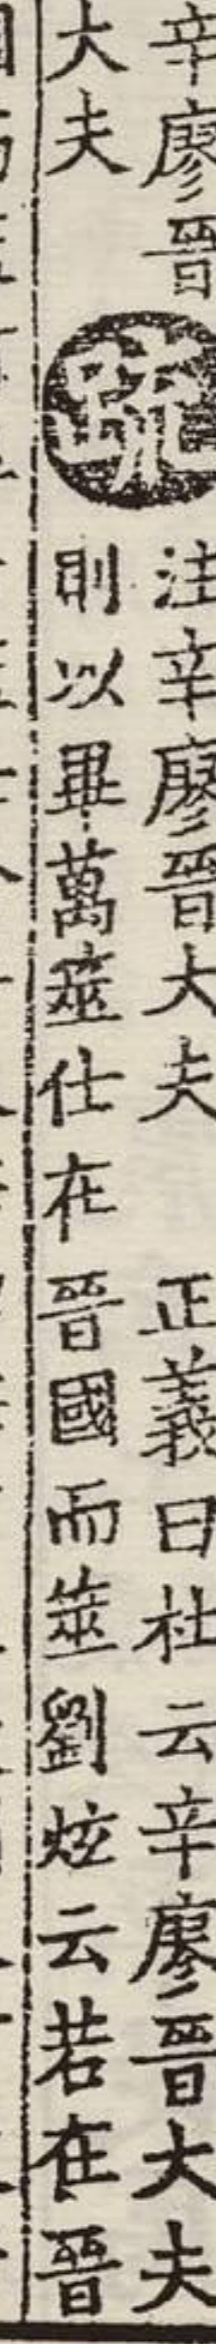 辛廖晉
大夫
疏
注辛廖晉大夫 正義曰杜云辛廖晉大夫
則以畢萬筮仕在晉國而筮劉炫云若在晉